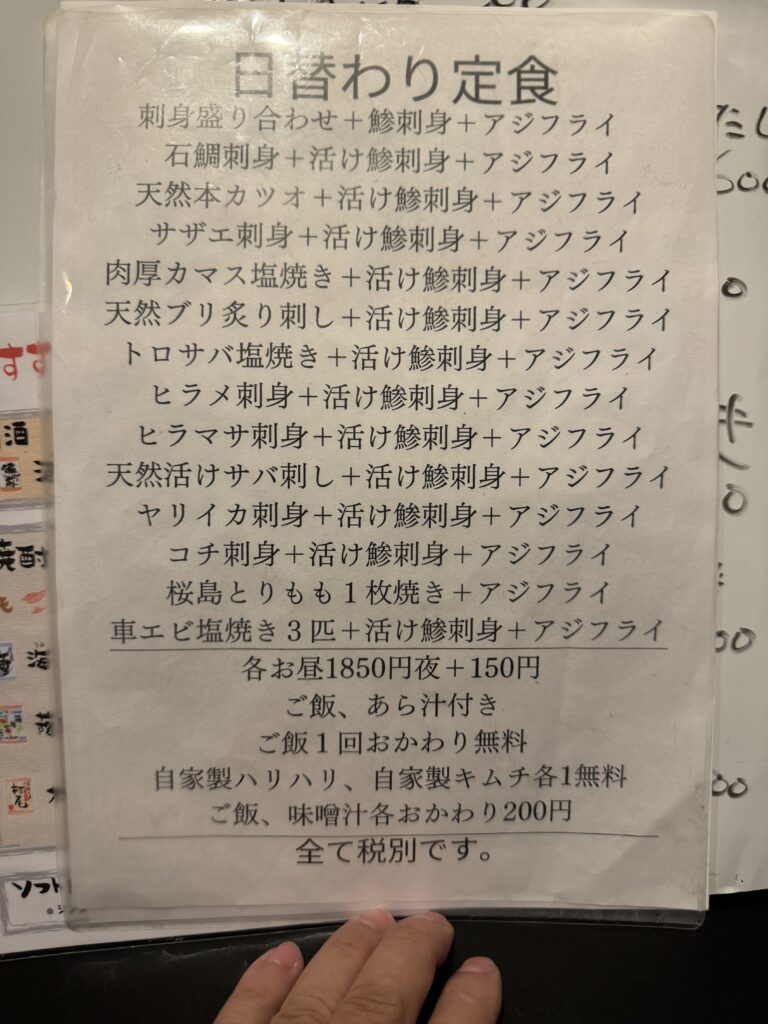 日替わり定食
刺身盛り合わせ＋鯵刺身＋アジフライ
石鯛刺身＋活け鯵刺身＋アジフライ
天然本カツオ＋活け鯵刺身＋アジフライ
サザエ刺身＋活け鯵刺身＋アジフライ
肉厚カマス塩焼き＋活け鯵刺身＋アジフライ
天然ブリ炙り刺し＋活け鯵刺身＋アジフライ
トロサバ塩焼き＋活け鯵刺身＋アジフライ
ヒラメ刺身＋活け鯵刺身＋アジフライ
ヒラマサ刺身＋活け鯵刺身＋アジフライ
天然活けサバ刺し＋活け鯵刺身＋アジフライ
ヤリイカ刺身＋活け鯵刺身＋アジフライ
コチ刺身＋活け鯵刺身＋アジフライ
桜島とりもも１枚焼き＋アジフライ
車エビ塩焼き３匹＋活け鯵刺身＋アジフライ
各お昼1850円夜＋150円
ご飯、あら汁付き
ご飯１回おかわり無料
自家製ハリハリ、自家製キムチ各1無料
ご飯、味噌汁各おかわり200円
全て税別です。
酒
ソフト